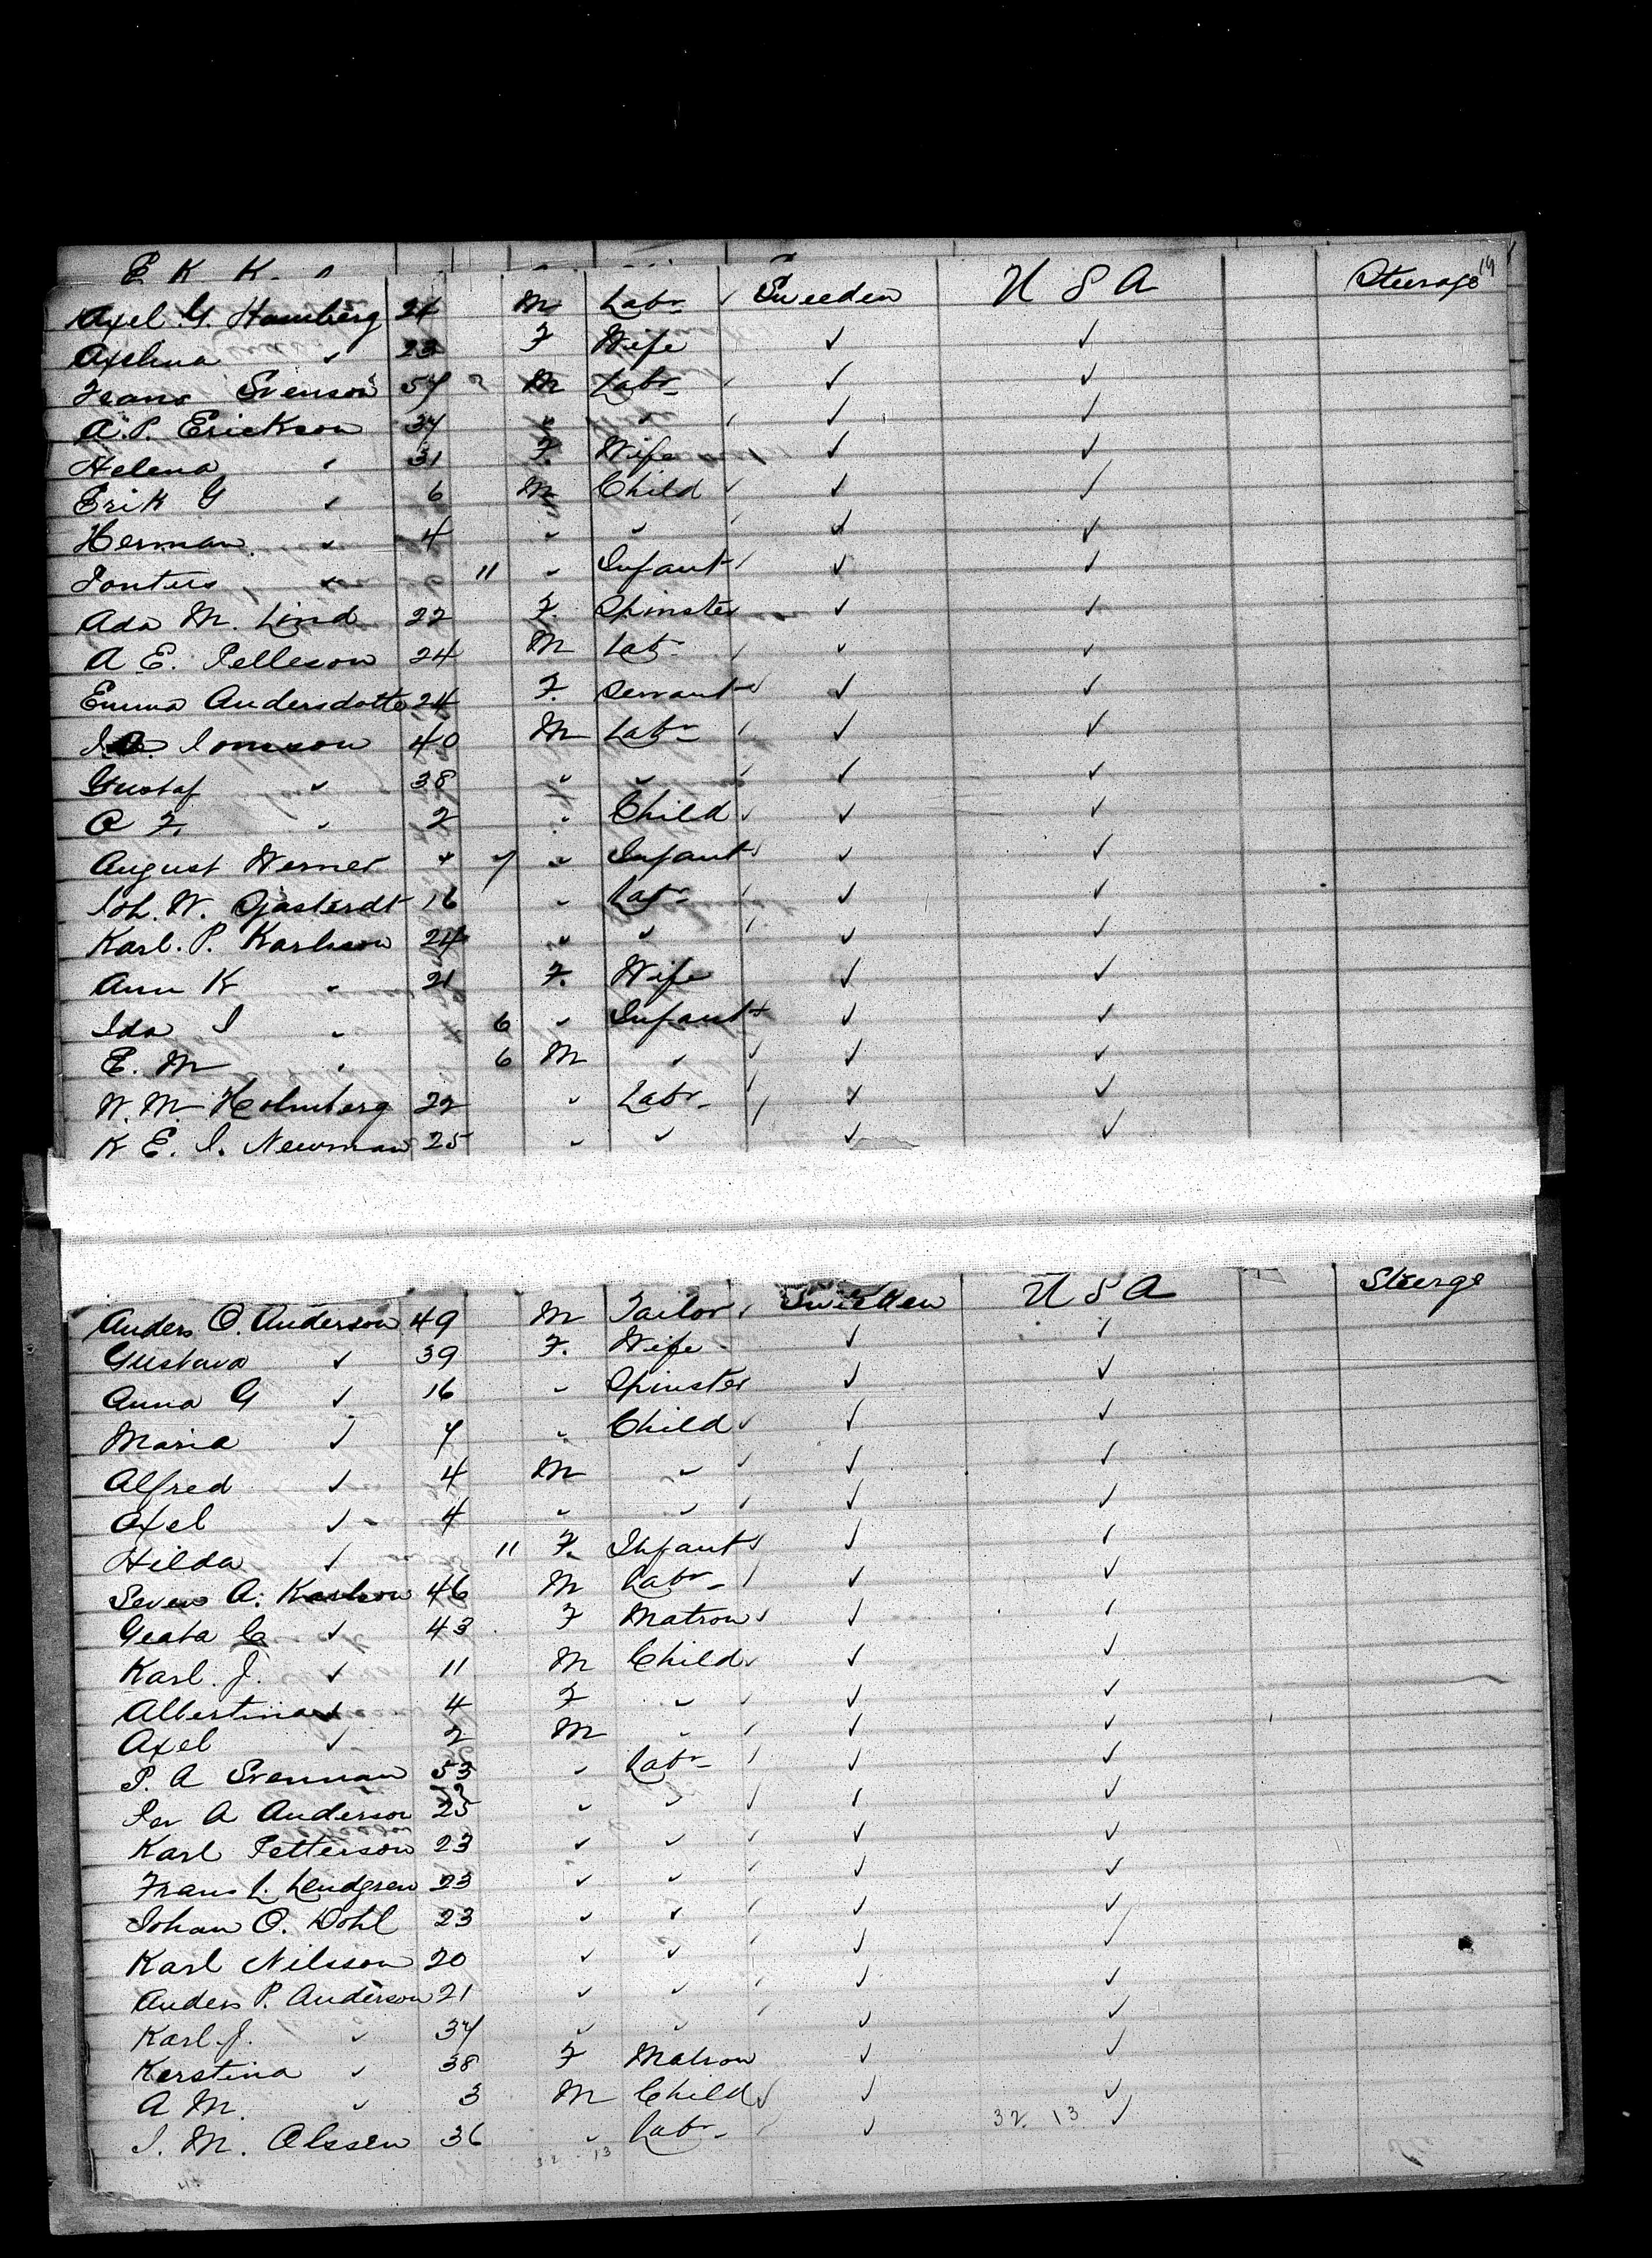 E K K
14
Axel G. Hamberg 24 M Labr ✓ Sweeden U S A Steerage
Axelina ✓ 23 F Wife ✓ ✓
Frans Svenson 57 M Labr ✓ ✓
A. P. Erickson 37 " " ✓ ✓
Helena ✓ 31 F. Wife ✓ ✓
Erik G ✓ 6 M Child ✓ ✓ ✓
Herman ✓ 4 " " ✓ ✓
Pontus ✓ 11 " Infant ✓ ✓
Ada M. Lind 22 F. Spinster ✓ ✓
A E. Pelleson 24 M Labr ✓ ✓
Emma Andersdotte 24 F. Servant ✓ ✓
Jonsson 40 M Labr ✓ ✓
Gustaf ✓ 38 " " ✓ ✓
F. ✓ 2 " Child ✓ ✓
August Werner 7 " Infant ✓ ✓
Joh. W. 16 " Labr ✓ ✓
Karl. P. Karlsson 24 " " ✓ ✓
Ann K " 21 F. Wife ✓ ✓
Ida I " 6 " Infant ✓ ✓
E. M " 6 M " ✓ ✓ ✓
W. M Holmberg 22 " Labr ✓ ✓
K E. I. Newman 25 " " ✓ ✓
Anders O. Anderson 49 M Tailor Sweeden U S A Steerge
Gustava ✓ 39 F. Wife ✓ ✓
Anna G ✓ 16 " Spinster ✓ ✓
Maria ✓ 7 " Child ✓ ✓ ✓
Alfred ✓ 4 M " ✓ ✓ ✓
Axel ✓ 4 " " ✓ ✓ ✓
Hilda ✓ 11 F. Infant ✓ ✓
Seven A. Karlson 46 M Labr ✓ ✓
Geata C ✓ 43 F Matron ✓ ✓
Karl. J. ✓ 11 M Child ✓ ✓
Albertina ✓ 4 F " ✓ ✓
Axel ✓ 2 M " ✓ ✓
P. A Svennan 53 " Labr ✓ ✓
Per A Anderson 25 " " ✓ ✓
Karl Petterson 23 " " ✓ ✓
Frans L. Lendgren 23 " " ✓ ✓
Johan O. Dohl 23 " " ✓ ✓
Karl Nilsson 20 " " ✓ ✓
Anders P. Anderson 21 " " ✓ ✓
Karl. J. ✓ 37 " " ✓ ✓
Kerstina ✓ 38 F Matron ✓ ✓
A M. ✓ 3 M Child ✓ ✓ ✓
J. M. Olssen 36 " Labr ✓ 32. 13 ✓
32 - 13